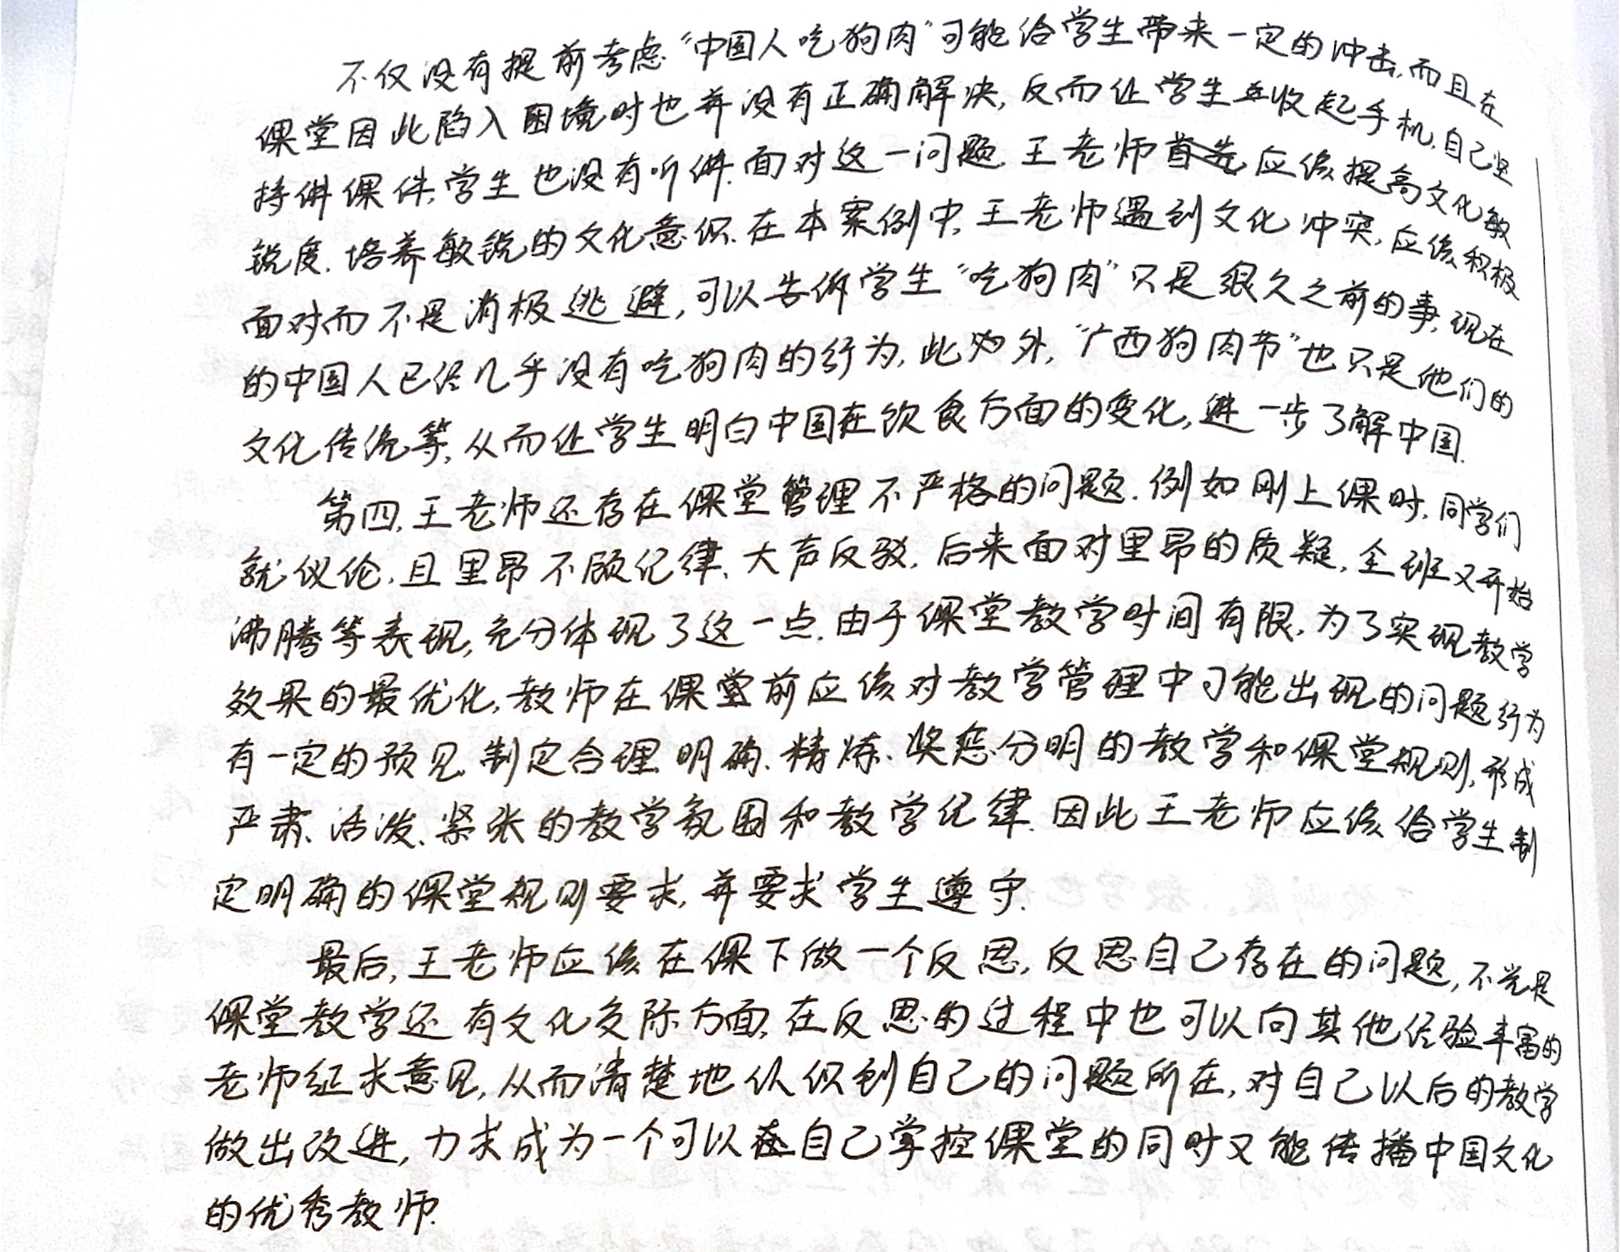 不仅没有提前考虑“中国人吃狗肉”可能给学生带来一定的冲击,而且在
课堂因此陷入困境时也并没有正确解决,反而让学生收起手机,自己坚
持讲课件,学生也没有听讲.面对这一问题.王老师首先应该提高文化敏
锐度.培养敏锐的文化意识.在本案例中,王老师遇到文化冲突,应该积极
面对而不是消极逃避,可以告诉学生“吃狗肉”只是很久之前的事,现在
的中国人已经几乎没有吃狗肉的行为,此外,“广西狗肉节”也只是他们的
文化传统等,从而让学生明白中国在饮食方面的变化,进一步了解中国.
第四,王老师还存在课堂管理不严格的问题.例如刚上课时,同学们
就议论,且里昂不顾纪律、大声反驳,后来面对里昂的质疑,全班又开始
沸腾等表现,充分体现了这一点.由于课堂教学时间有限,为了实现教学
效果的最优化,教师在课堂前应该对教学管理中可能出现的问题行为
有一定的预见,制定合理、明确、精炼、奖惩分明的教学和课堂规则,形成
严肃、活泼、紧张的教学氛围和教学纪律.因此王老师应该给学生制
定明确的课堂规则要求,并要求学生遵守.
最后,王老师应该在课下做一个反思,反思自己存在的问题,不光是
课堂教学还有文化交际方面,在反思的过程中也可以向其他经验丰富的
老师征求意见,从而清楚地认识到自己的问题所在,对自己以后的教学
做出改进,力求成为一个可以在自己掌控课堂的同时又能传播中国文化
的优秀教师.